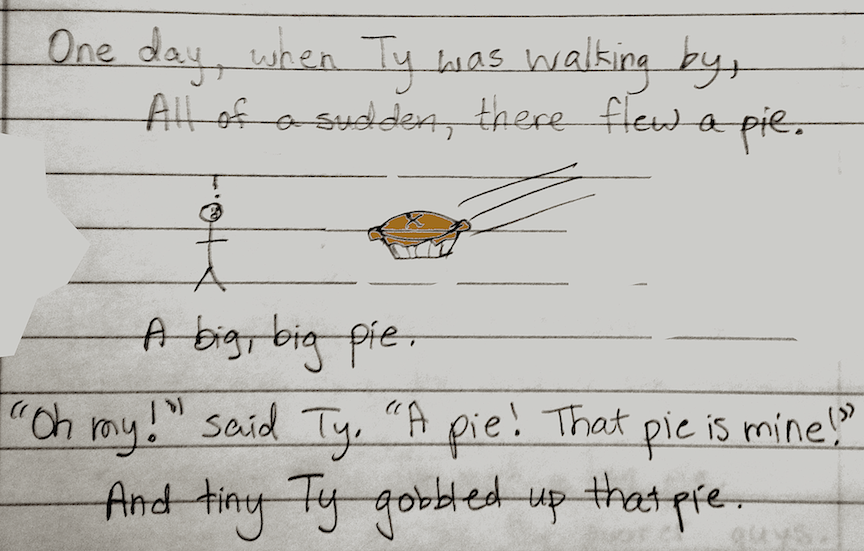 One day, when Ty was walking by,
All of a sudden, there flew a pie.
A big, big pie.
"Oh my!" said Ty. "A pie! That pie is mine!"
And tiny Ty gobbled up that pie.
guys.